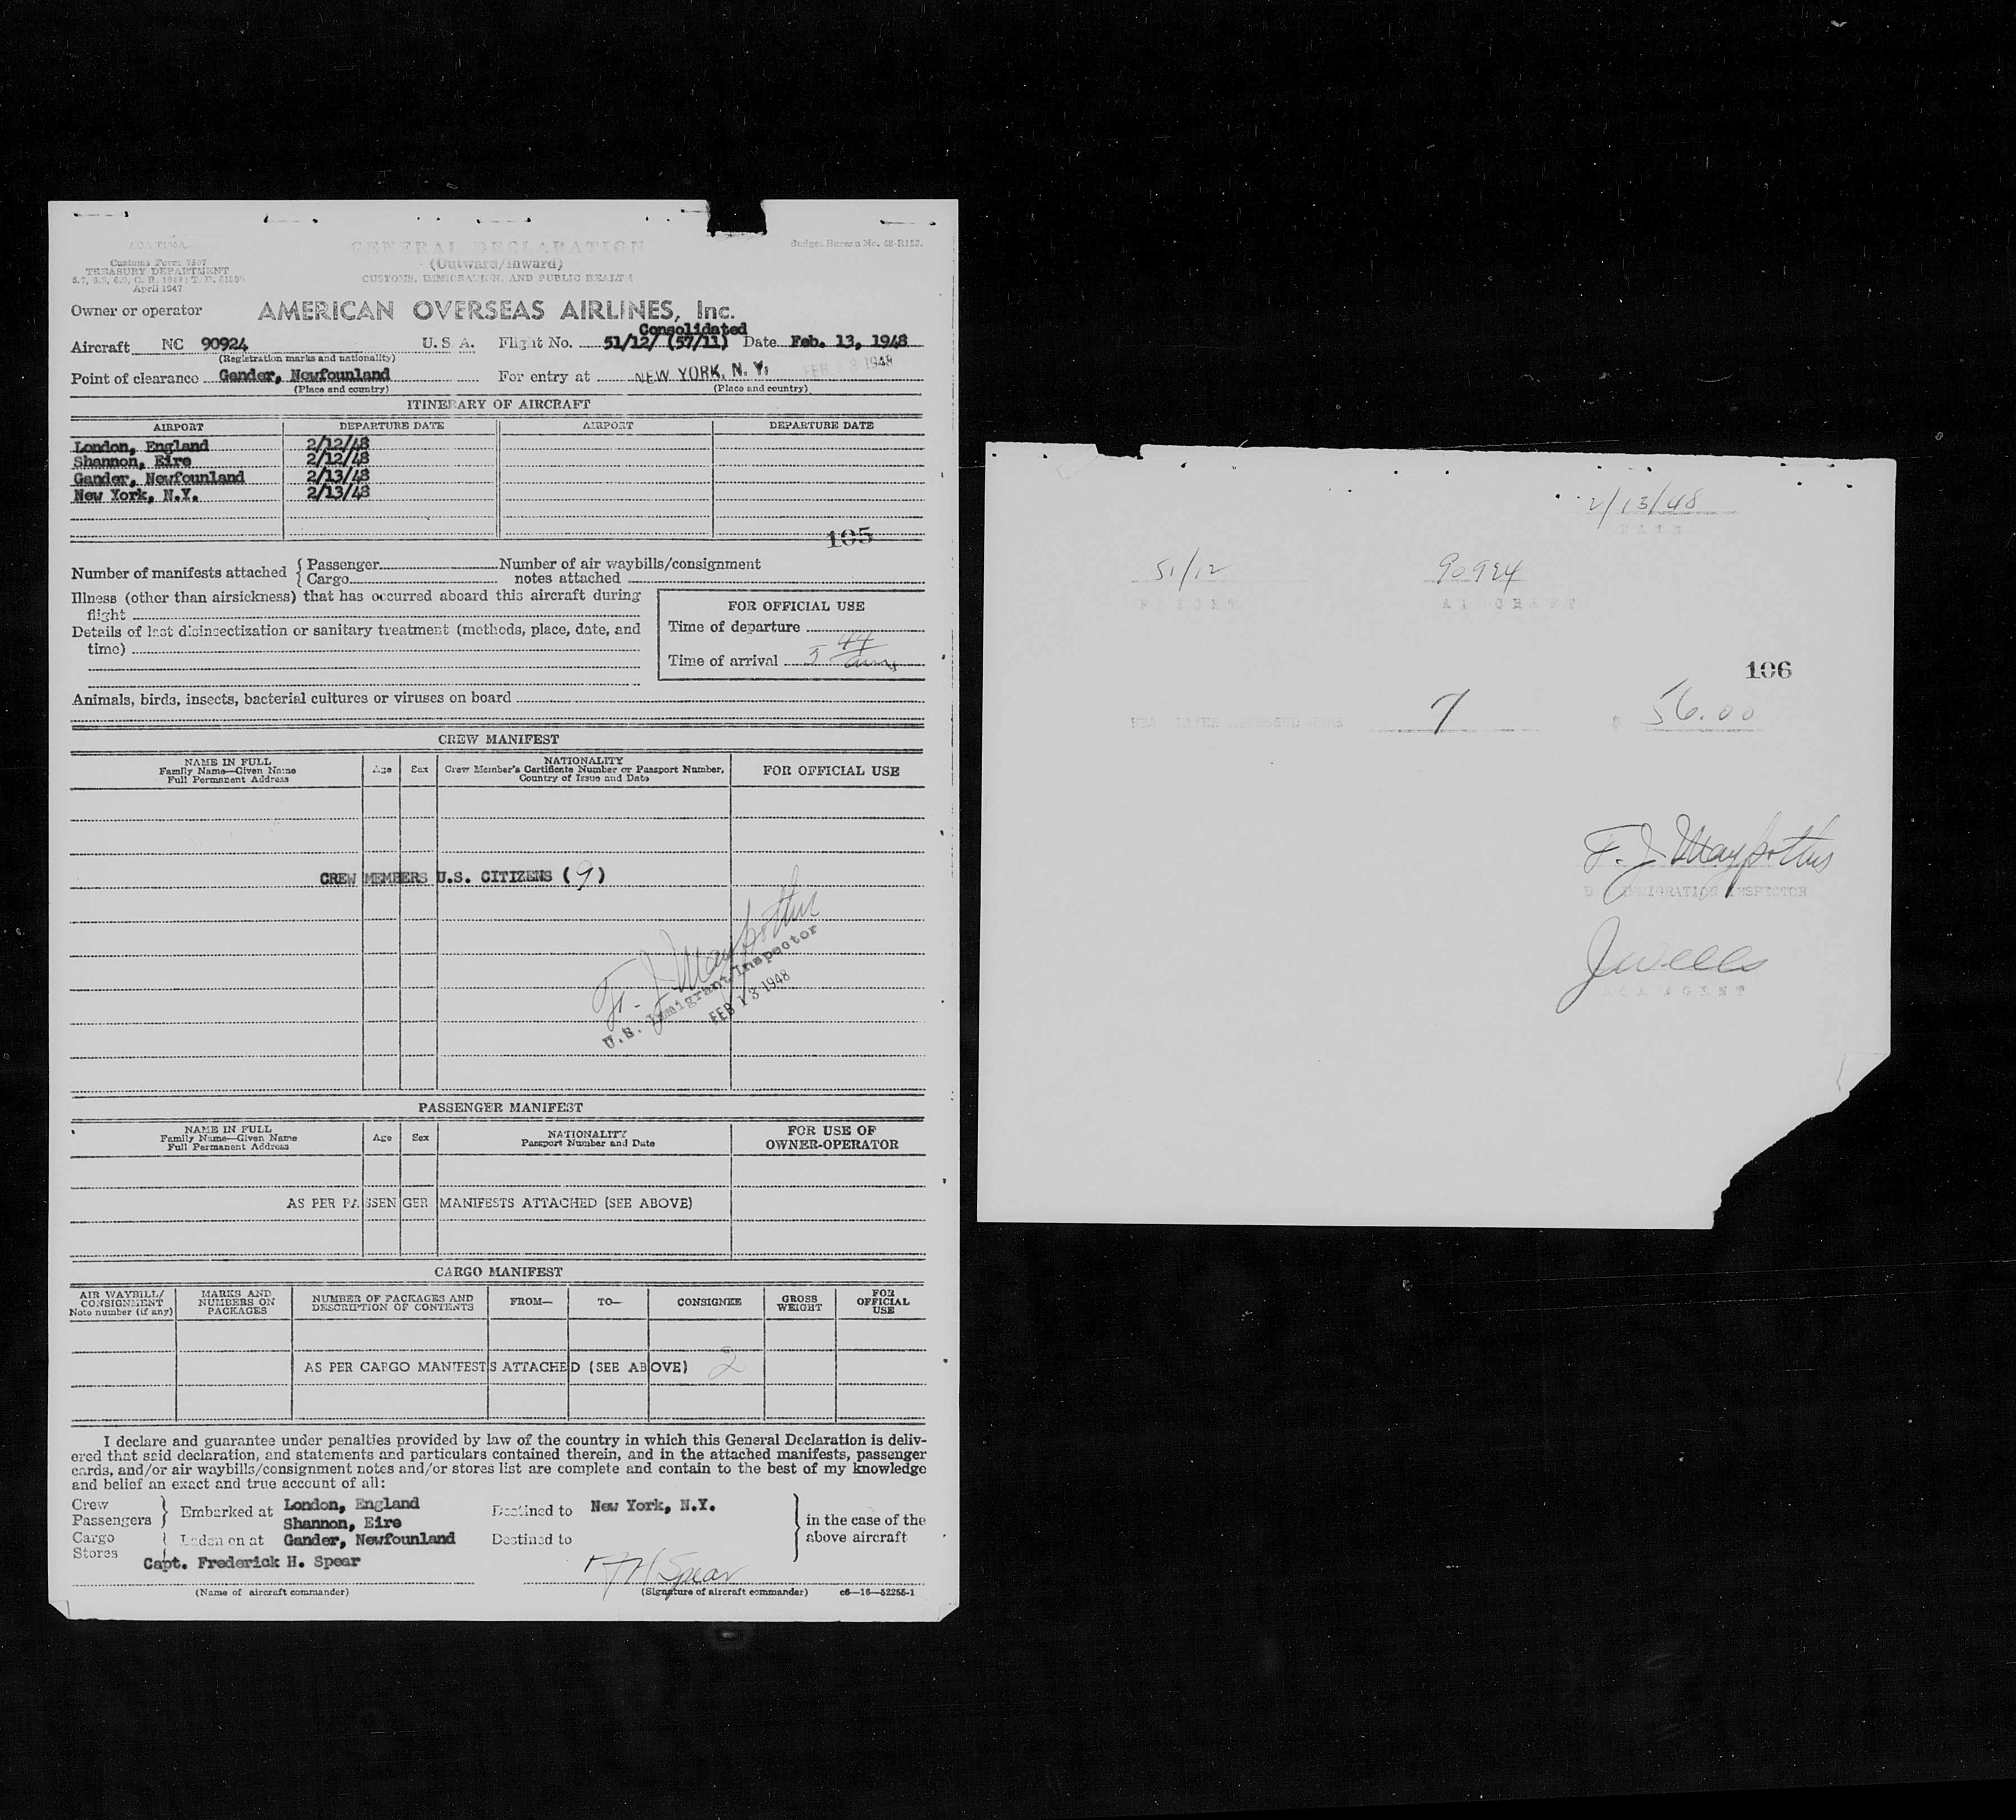 GENERAL DECLARATION
(Outward/Inward)
CUSTOMS, IMMIGRATION, AND PUBLIC HEALTH
Customs Form 7507
TREASURY DEPARTMENT
April 1947
Owner or operator AMERICAN OVERSEAS AIRLINES, Inc.
Consolidated
Aircraft NC 90924 U. S. A. Flight No. 51/12/ (57/11) Date Feb. 13, 1948
(Registration marks and nationality)
Point of clearance Gander, Newfounland For entry at NEW YORK, N. Y. FEB 13 1948
(Place and country) (Place and country)
ITINERARY OF AIRCRAFT
AIRPORT DEPARTURE DATE AIRPORT DEPARTURE DATE
London, England 2/12/48
Shannon, Eire 2/12/48
Gander, Newfounland 2/13/48
New York, N.Y. 2/13/48
105
Number of manifests attached { Passenger Number of air waybills/consignment
{ Cargo notes attached
Illness (other than airsickness) that has occurred aboard this aircraft during
flight
Details of last disinsectization or sanitary treatment (methods, place, date, and
time)
FOR OFFICIAL USE
Time of departure
Time of arrival 5 44 am
Animals, birds, insects, bacterial cultures or viruses on board
CREW MANIFEST
NAME IN FULL
Family Name—Given Name
Full Permanent Address
Age Sex
NATIONALITY
Crew Member's Certificate Number or Passport Number,
Country of Issue and Date
FOR OFFICIAL USE
CREW MEMBERS U.S. CITIZENS (9)
U.S. Immigrant Inspector
FEB 13 1948
PASSENGER MANIFEST
NAME IN FULL
Family Name—Given Name
Full Permanent Address
Age Sex
NATIONALITY
Passport Number and Date
FOR USE OF
OWNER-OPERATOR
AS PER PASSENGER MANIFESTS ATTACHED (SEE ABOVE)
CARGO MANIFEST
AIR WAYBILL/
CONSIGNMENT
Note number (if any)
MARKS AND
NUMBERS ON
PACKAGES
NUMBER OF PACKAGES AND
DESCRIPTION OF CONTENTS
FROM— TO— CONSIGNEE
GROSS
WEIGHT
FOR
OFFICIAL
USE
AS PER CARGO MANIFESTS ATTACHED (SEE ABOVE) 2
I declare and guarantee under penalties provided by law of the country in which this General Declaration is deliv-
ered that said declaration, and statements and particulars contained therein, and in the attached manifests, passenger
cards, and/or air waybills/consignment notes and/or stores list are complete and contain to the best of my knowledge
and belief an exact and true account of all:
Crew
Passengers } Embarked at London, England Destined to New York, N.Y. in the case of the
Shannon, Eire
Cargo
Stores { Laden on at Gander, Newfounland Destined to above aircraft
Capt. Frederick H. Spear
FH Spear
(Name of aircraft commander) (Signature of aircraft commander) c6—16—52255-1
2/13/48
DATE
51/12 90924
FLIGHT AIRCRAFT
106
HEAD TAXES ASSESSED 7 $ 56.00
IMMIGRATION INSPECTOR
JWells
AOA AGENT